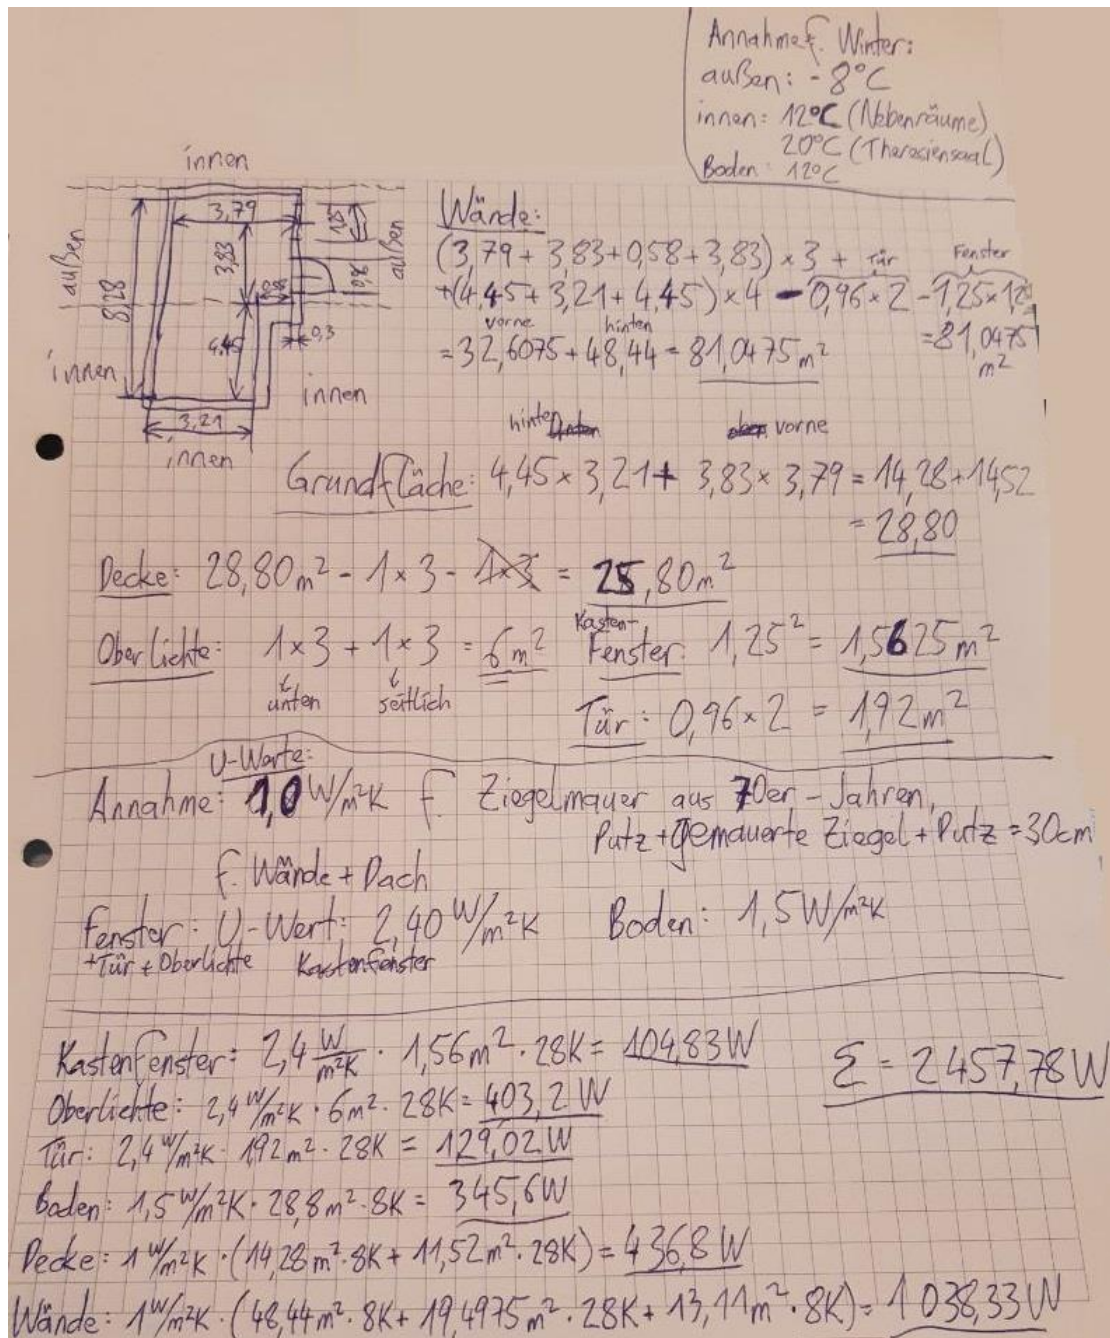 Annahme f. Winter:
außen: -8°C
innen: 12°C (Nebenräume)
20°C (Theresiensaal)
Boden: 12°C
innen
3,79
1,25
außen
8,28
3,83
außen
4,45
0,3
innen
innen
3,21
innen
Wände:
(3,79 + 3,83 + 0,58 + 3,83) × 3 + Tür Fenster
+(4,45 + 3,21 + 4,45) × 4 - 0,96 × 2 - 1,25 × 1,25
vorne hinten
= 32,6075 + 48,44 = 81,0475 m² = 81,0475 m²
hinten vorne
Grundfläche: 4,45 × 3,21 + 3,83 × 3,79 = 14,28 + 14,52
= 28,80
Decke: 28,80 m² - 1 × 3 - 1×3 = 25,80 m²
Oberlichte: 1 × 3 + 1 × 3 = 6 m²
unten seitlich
Kasten-
Fenster: 1,25² = 1,5625 m²
Tür: 0,96 × 2 = 1,92 m²
U-Werte:
Annahme: 1,0 W/m²K f. Ziegelmauer aus 70er-Jahren,
Putz + gemauerte Ziegel + Putz = 30cm
f. Wände + Dach
Fenster: U-Wert: 2,40 W/m²K Boden: 1,5 W/m²K
+Tür + Oberlichte Kastenfenster
Kastenfenster: 2,4 W/m²K · 1,56 m² · 28K = 104,83 W
Σ = 2457,78 W
Oberlichte: 2,4 W/m²K · 6 m² · 28K = 403,2 W
Tür: 2,4 W/m²K · 1,92 m² · 28K = 129,02 W
Boden: 1,5 W/m²K · 28,8 m² · 8K = 345,6 W
Decke: 1 W/m²K · (14,28 m² · 8K + 11,52 m² · 28K) = 436,8 W
Wände: 1 W/m²K · (48,44 m² · 8K + 19,4975 m² · 28K + 13,11 m² · 8K) = 1038,33 W